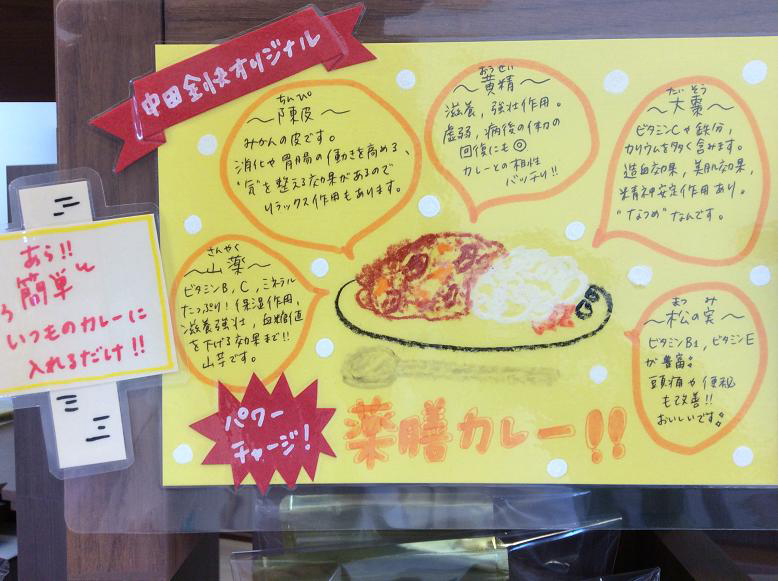 中田全快オリジナル
ちんぴ
~陳皮~
みかんの皮です。
消化や胃腸の働きを高める、
"気"も整える効果があるので
リラックス作用もあります。
おうせい
~黄精~
滋養、強壮作用。
虚弱、病後の体の
回復にも◎
カレーとの相性
バッチリ!!
だいそう
~大棗~
ビタミンCや鉄分、
カリウムを多く含みます。
造血効果、美肌効果、
精神安定作用あり。
"なつめ"なんです。
さんやく
~山薬~
ビタミンB、C、ミネラル
たっぷり!保湿作用、
滋養強壮、血糖値
を下げる効果まで!!
山芋です。
まつ み
~松の実~
ビタミンB1、ビタミンE
が豊富
頭痛や便秘
も改善!!
おいしいです
あら!!
簡単
いつものカレーに
入れるだけ!!
パワー
チャージ!
薬膳カレー!!